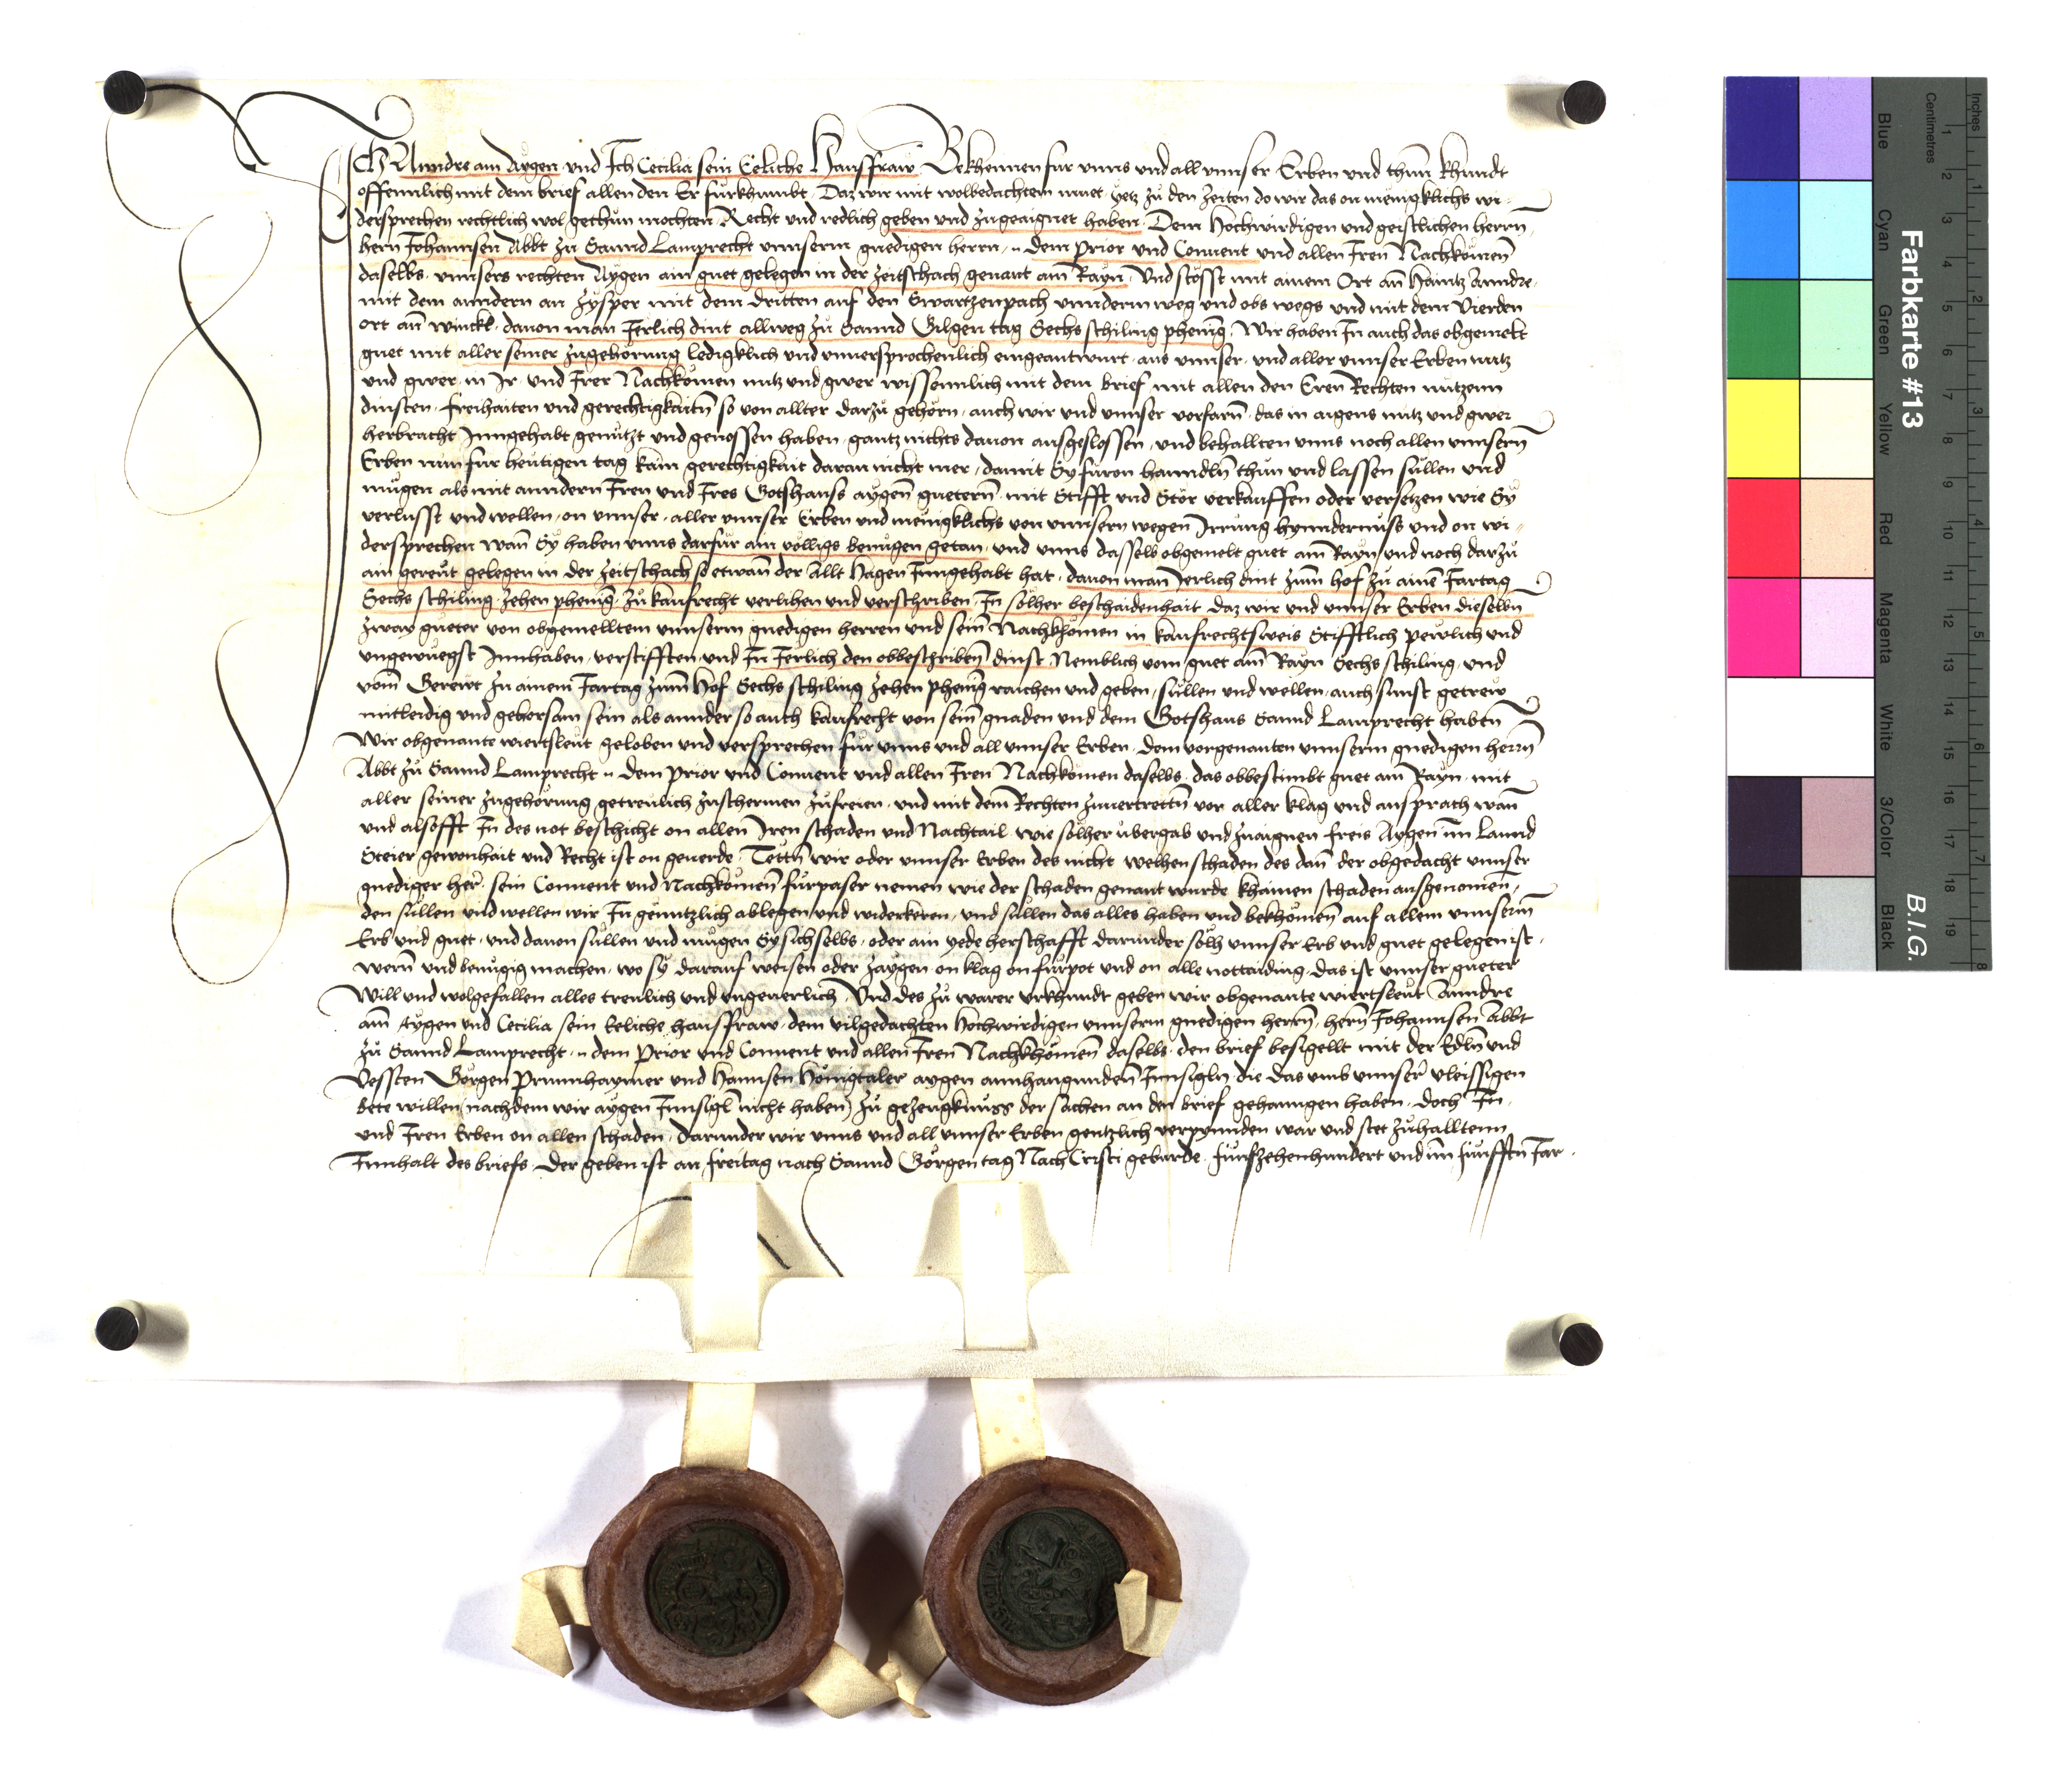 ICh Anndre am Aygen und Ich Cecilia sein Eeliche Hausfraw Bekhennen fur unns und all unnser Erben und thun khundt
offennlich mit dem brief allen den Er furkhumbt Daz wir mit wolbedachtem muet yetz zů den zeiten do wir das on menigklichs wi-
dersprechen rechtlich wol gethun mochten Recht und redlich geben und zugeaignet haben Dem Hochwirdigen und geistlichen herrn
hern Johannsen Abbt zu Sannd Lamprecht unnserm gnedigen herrn dem prior und Convent und allen Iren Nachkomen
daselbs unnsers rechten Aygen ain guet gelegen in der Zeitschach genant am Rayn Und stosst mit ainem Ort an Haintz Anndre
mit dem anndern an Zysper mit dem dritten auf den Swartzenpach unnderm weg und obs wegs und mit dem Vierden
ort am winckl davon man Jerlich dint allweg zů Sannd Gilgen tag Sechs schiling phenig Wir haben In auch das obgemelt
guet mit aller seiner zugehorung ledigklich und unversprochenlich eingeantwurt aus unnser und aller unnser Erben nutz
und gwer in Ir und Irer Nachkomen nutz und gwer wissenntlich mit dem brief mit allen den Eren Rechten nutzenn
dinsten freihaiten und gerechtigkaitn so von allter darzů gehorn auch wir und unnser vorfarn das in aigens nutz und gwer
herbracht Inngehabt genutzt und genossen haben gantz nichts davon ausgeslossen und behallten unns noch allen unnsern
Erben nun fur heutigen tag kain gerechtigkait daran nicht mer damit Sy furon hanndln thun und lassen sullen und
mugen als mit anndern Iren und Ires Gotshauss aygen guetern mit Stifft und Stör verkauffen oder versetzen wie Sy
verlusst und wellen on unnser aller unnser Erben und menigklichs von unnsern wegen Irrung hynndernuss und on wi-
dersprechen wan Sy haben unns darfur ain völligs benuegen getan und unns dasselb obgemelt guet am Rayn und noch darzů
ain gereut gelegen in der Zeitschach so etwan der Allt Hagen Inngehabt hat davon man Jerlich dint zum hof zů ainem Jartag
Sechs schiling zehen phenig zů kaufrecht verlihen und verschriben In solher beschaidenhait daz wir und unnser Erben dieselbn
zway gueter von obgemelltem unnserm gnedigen herren und sein Nachkhomen in kaufrechtsweis Stifftlich pewlich und
ungewuegst Innhaben verstifften und In Jerlich den obbeschriben dinst Nemblich vom guet am Rayn Sechs schiling und
vom Gereut zu ainem Jartag zum Hof Sechs schiling zehen phenig raichen und geben sullen und wellen auch sunst getrew
mitleidig und gehorsam sein als annder so auch kaufrecht von sein gnaden und dem Gotshaus Sannd Lamprecht haben
Wir obgenante wiertsleut geloben und versprechen fur unns und all unnser Erben dem vorgenanten unnserm gnedigen herrn
Abbt zů Sannd Lamprecht dem prior und Convent und allen Iren Nachkomen daselbs das obbestimbt guet am Rayn mit
aller seiner zugehörung getreulich zuschermen zufreien und mit dem Rechten zuvertrettn vor aller klag und ansprach wan
und alsofft In des not beschicht on allen Iren schaden und Nachtail wie solher ubergab und zuaignen freis Aygen im Lannd
Steier gewonhait und Recht ist on geuerde Tettn wir oder unnser Erben des nicht welhen schaden des dan der obgedacht unnser
gnediger her sein Convent und Nachkomen furpaser nemen wie der schaden genant wurde khainen schaden ausgenomen
den sullen und wellen wir In genntzlich ablegen und widerkeren und sullen das alles haben und bekhomen auf allem unnserm
Erb und guet und davon sullen und mugen Sy sichselbs oder ain yede herschafft darunder solh unnser Erb und guet gelegen ist
wern und benugig machen wo sy darauf weisen oder zaygen on klag on furpot und on alle nottaiding das ist unnser gueter
Will und wolgefallen alles treulich und ungeuerlich Und des zů warer urkhundt geben wir obgenante wiertsleut Anndre
am Aygen und Cecilia sein Eeliche hausfraw dem vilgedachten Hochwirdigen unnserm gnedigen herrn hern Johannsen Abbt
zů Sannd Lamprecht dem Prior und Convent und allen Iren Nachkhomen daselbs den brief besigellt mit der Edln und
Vessten Görgen Prunnhaymer und Hannsen Hönigtaler aygen annhangunden Innsigln die das umb unnser vleissigen
bete willen (nachdem wir aygen Innsigl nicht haben) zů gezeugknuss der sachen an den brief gehanngen haben doch In
und Iren Erben on allen schaden darunder wir unns und all unnser Erben genntzlich verpunden war und stet zuhalltenn
Innhalt des briefs Der geben ist an freitag nach Sannd Görgen tag Nach Cristi geburde funfzehenhundert und im funfftn Jar
Farbkarte #13
B.I.G.
Inches
Centimetres
Blue
Cyan
Green
Yellow
Red
Magenta
White
3/Color
Black
1 2 3 4 5 6 7 8 9 10 11 12 13 14 15 16 17 18 19
1 2 3 4 5 6 7 8